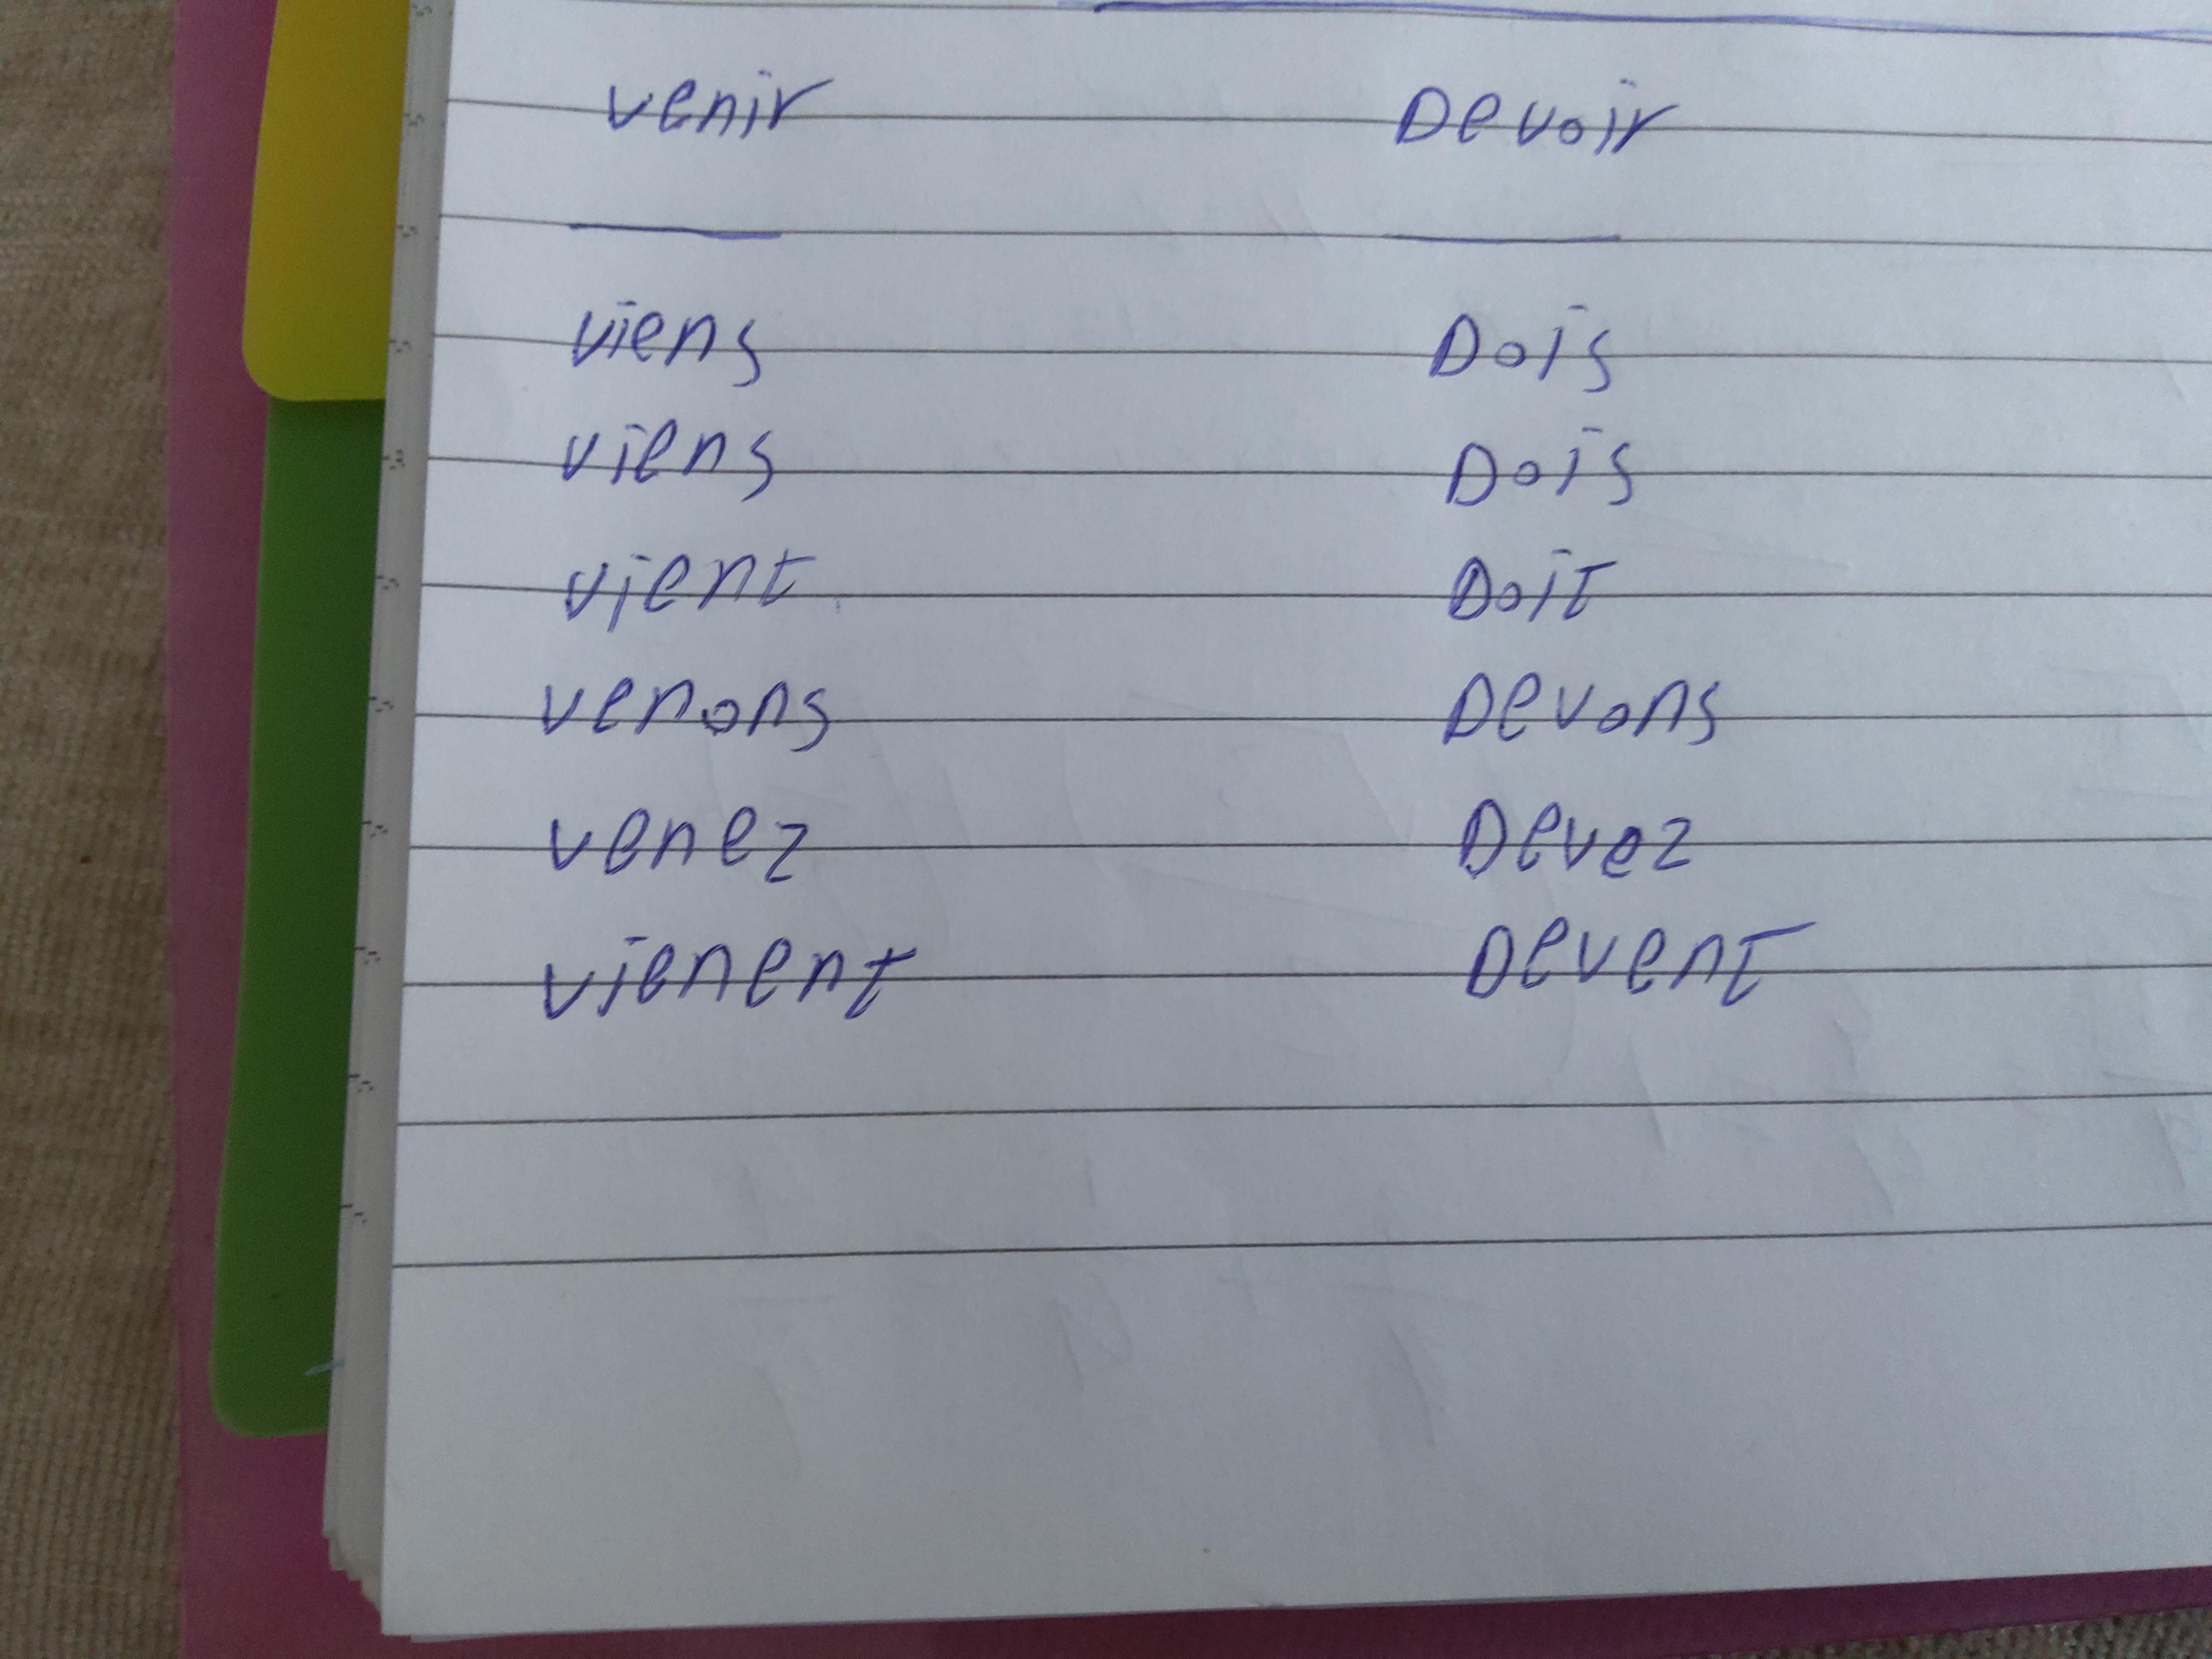 venir Devoir
viens Dois
viens Dois
vient Doit
venons Devons
venez Devez
vienent Devent